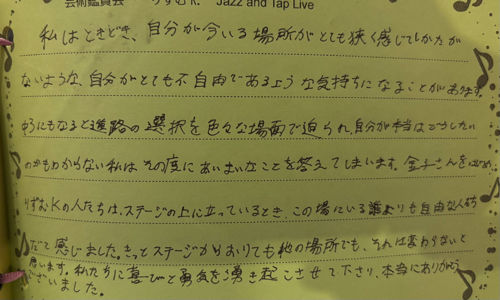 芸術鑑賞会 りずむK. Jazz and Tap Live
私はときどき、自分が今いる場所がとても狭く感じてしかたが
ないような、自分がとても不自由であるような気持ちになることがあります。
にもなると進路の選択を色々な場面で迫られ、自分が本当はどうしたい
のかもわからない私はその度にあいまいなことを答えてしまいます。金子さんを
りずむKの人たちは、ステージの上に立っているとき、この場にいる誰よりも自由な人たち
だって感じました。きっとステージからおりても他の場所でも、それは変わらないと
思います。私たちに喜びと勇気を湧き起こさせて下さり、本当にありがとう
ございました。